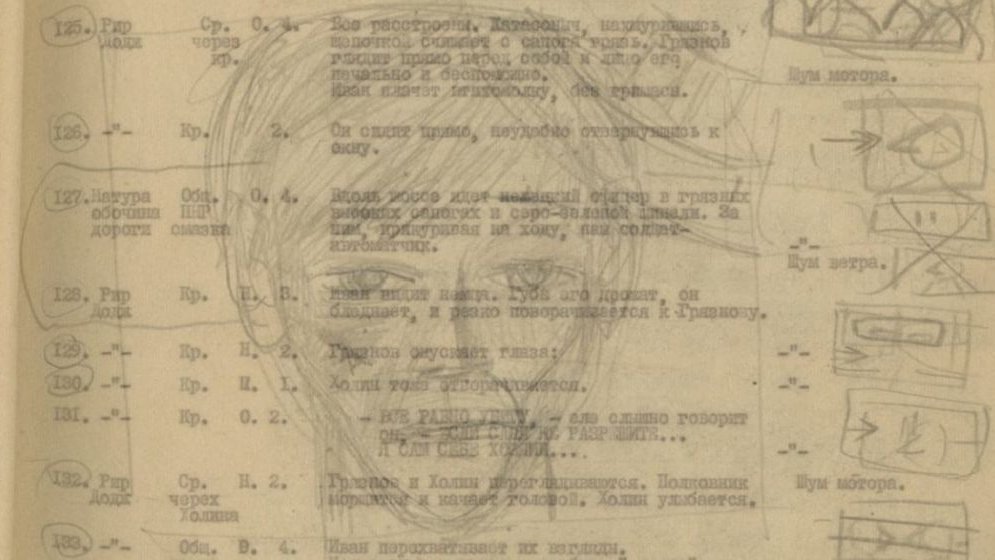 125. Рир Ср. О. 4. Все расстроены. Катасоныч, нахмурившись,
Додж через щепочкой счищает с сапога грязь. Грязнов
кр. глядит прямо перед собой и лицо его
печально и беспокойно. Шум мотора.
Иван плачет втихомолку, без гримаса.
126. -"- Кр. 2. Он сидит прямо, неудобно отвернувшись к
окну.
127. Натура Общ. О. 4. Вдоль шоссе идет немецкий офицер в грязных
обочина ПНР высоких сапогах и серо-зеленой шинели. За
дороги смазка ним, прикуривая на ходу, наш солдат-
автоматчик. -"-
Шум ветра.
128. Рир Кр. Н. 3. Иван видит немца. Губы его дрожат, он
Додж бледнеет, и резко поворачивается к Грязнову.
129. -"- Кр. Н. 2. Грязнов опускает глаза: -"-
130. -"- Кр. Н. 1. Холин тоже отворачивается. -"-
131. -"- Кр. О. 2. - ВСЕ РАВНО УЙДУ, - еле слышно говорит
он, - ЕСЛИ НЕ РАЗРЕШИТЕ...
Я САМ СЕБЕ ХОЗЯИН.... -"-
132. Рир Ср. Н. 2. Грязнов и Холин переглядываются. Полковник Шум мотора.
Додж черех морщится и качает головой. Холин улыбается.
Холина
133. -"- Общ. В. 4. Иван перехватывает их взгляды.